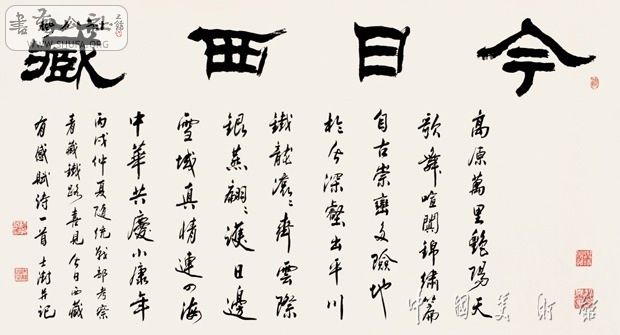 今日西藏
高原萬里艷陽天
歌舞喧闐錦繡篇
自古崇巒多險地
於今深壑出平川
鐵龍滾〻齊雲際
銀燕翩〻護日邊
雪域真情連四海
中華共慶小康年
丙戌仲夏隨統戰部考察
青藏鐵路喜見今日西藏
有感賦詩一首士澍并記
WWW.SHUFA.ORG
中國美術館